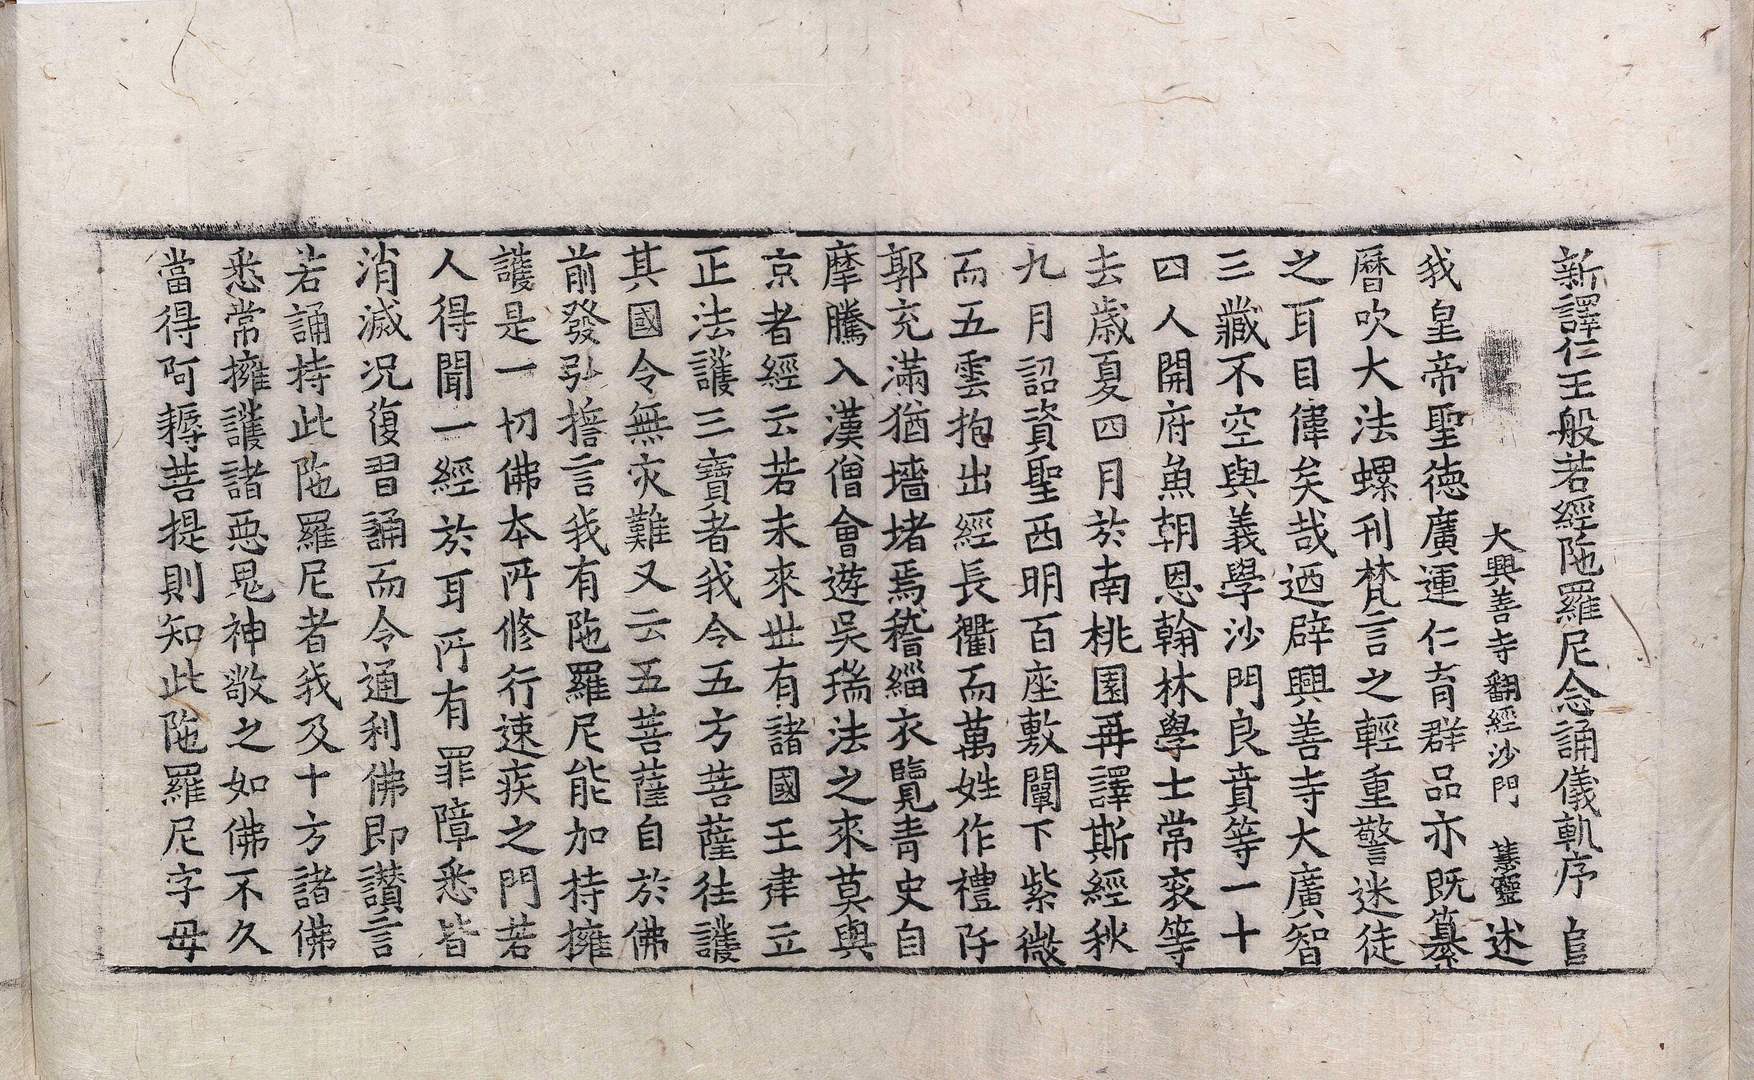 新譯仁王般若經陁羅尼念誦儀軌序
大興善寺翻經沙門 慧靈 述
我皇帝聖德廣運仁育群品亦旣纂
曆吹大法螺刊梵言之輕重警迷徒
之耳目偉矣哉迺辟興善寺大廣智
三藏不空與義學沙門良賁等一十
四人開府魚朝恩翰林學士常衮等
去歲夏四月於南桃園再譯斯經秋
九月詔資聖西明百座敷闡下紫微
而五雲抱出經長衢而萬姓作禮阡
郭充滿猶墻堵焉稽緇衣覽青史自
摩騰入漢僧會遊吳瑞法之來莫與
京者經云若未來世有諸國王建立
正法護三寶者我令五方菩薩往護
其國令無灾難又云五菩薩自於佛
前發弘誓言我有陁羅尼能加持擁
護是一切佛本所修行速疾之門若
人得聞一經於耳所有罪障悉皆
消滅况復習誦而令通利佛即讃言
若誦持此陁羅尼者我及十方諸佛
悉常擁護諸惡鬼神敬之如佛不久
當得阿耨菩提則知此陁羅尼字母